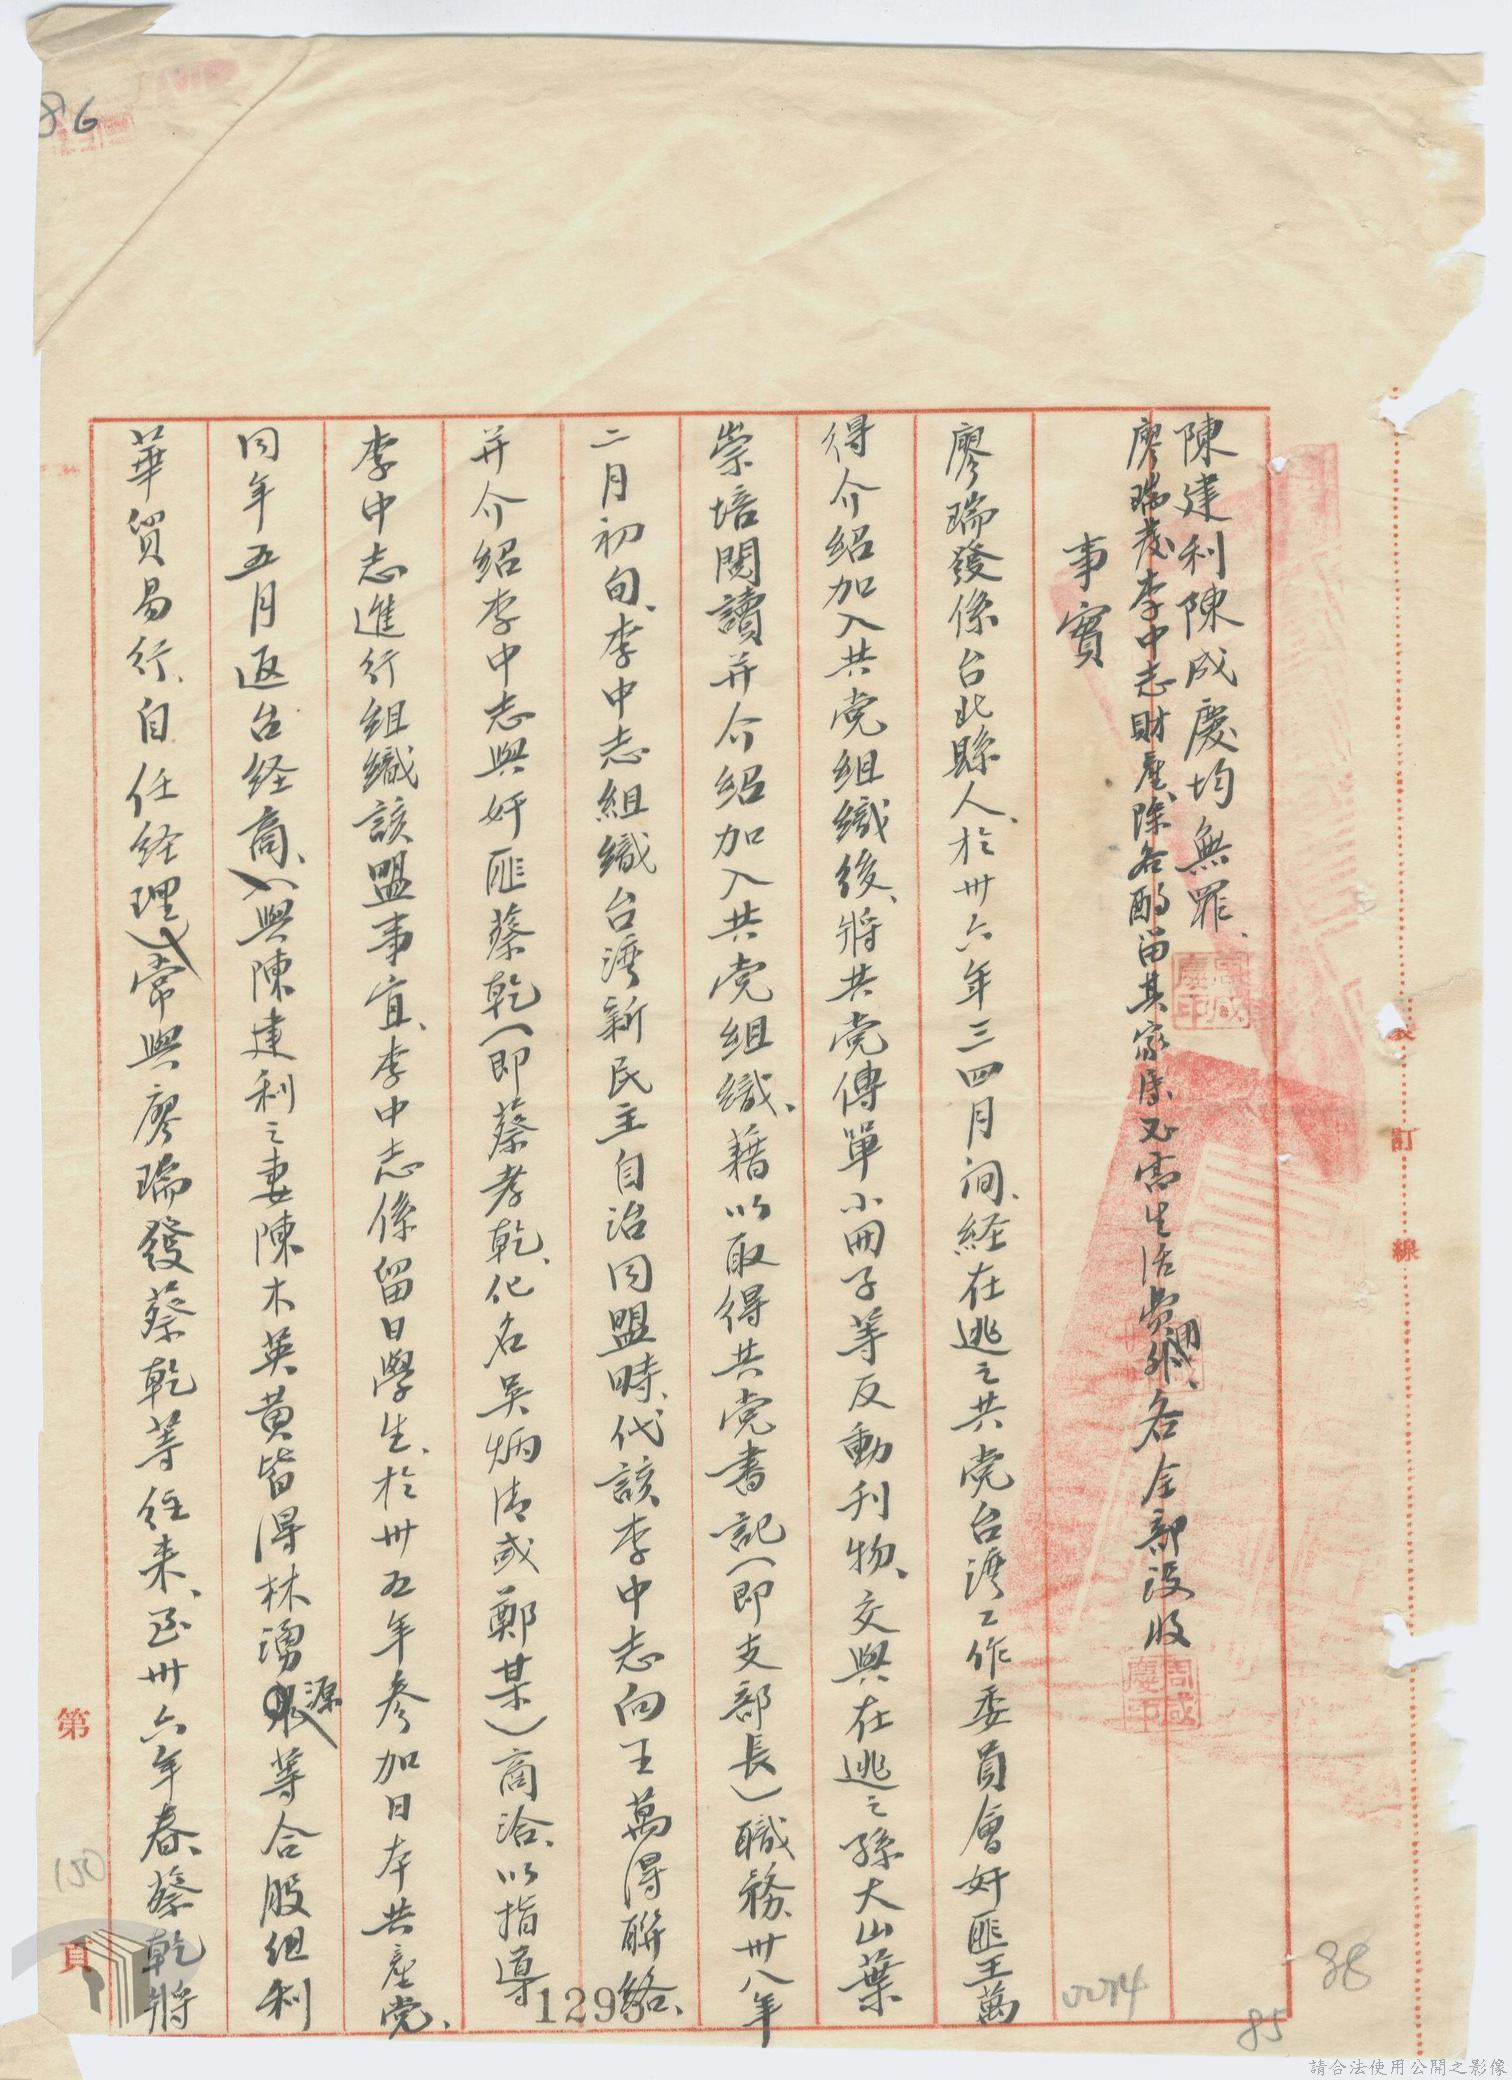 86
陳建利陳成慶均無罪、
廖瑞發李中志財產、除各酌留其家屬必需生活費用外、各全部沒收
事實
廖瑞發係台北縣人、於卅六年三四月间、経在逃之共党台湾工作委員會奸匪王萬
得介紹加入共党組織後、将共党傳單小冊子等反動刊物、交與在逃之孫大山葉
崇培閱讀并介紹加入共党組織、藉以取得共党書記（即支部長）職務、卅八年
二月初旬、李中志組織台湾新民主自治同盟時、代該李中志向王萬得聯絡、
并介紹李中志與奸匪蔡乾（即蔡孝乾、化名吳炳清或鄭某）商洽、以指導
李中志進行組織該盟事宜、李中志係留日學生、於卅五年参加日本共産党、
同年五月返台経商、（與陳建利之妻陳木英黄皆得林湧源等合股組利
華貿易行、自任経理）常與廖瑞發蔡乾等往来、至卅六年春、蔡乾将
裝訂線
周咸慶印
周咸慶印
第
頁
150
1293
0074
85
88
請合法使用公開之影像